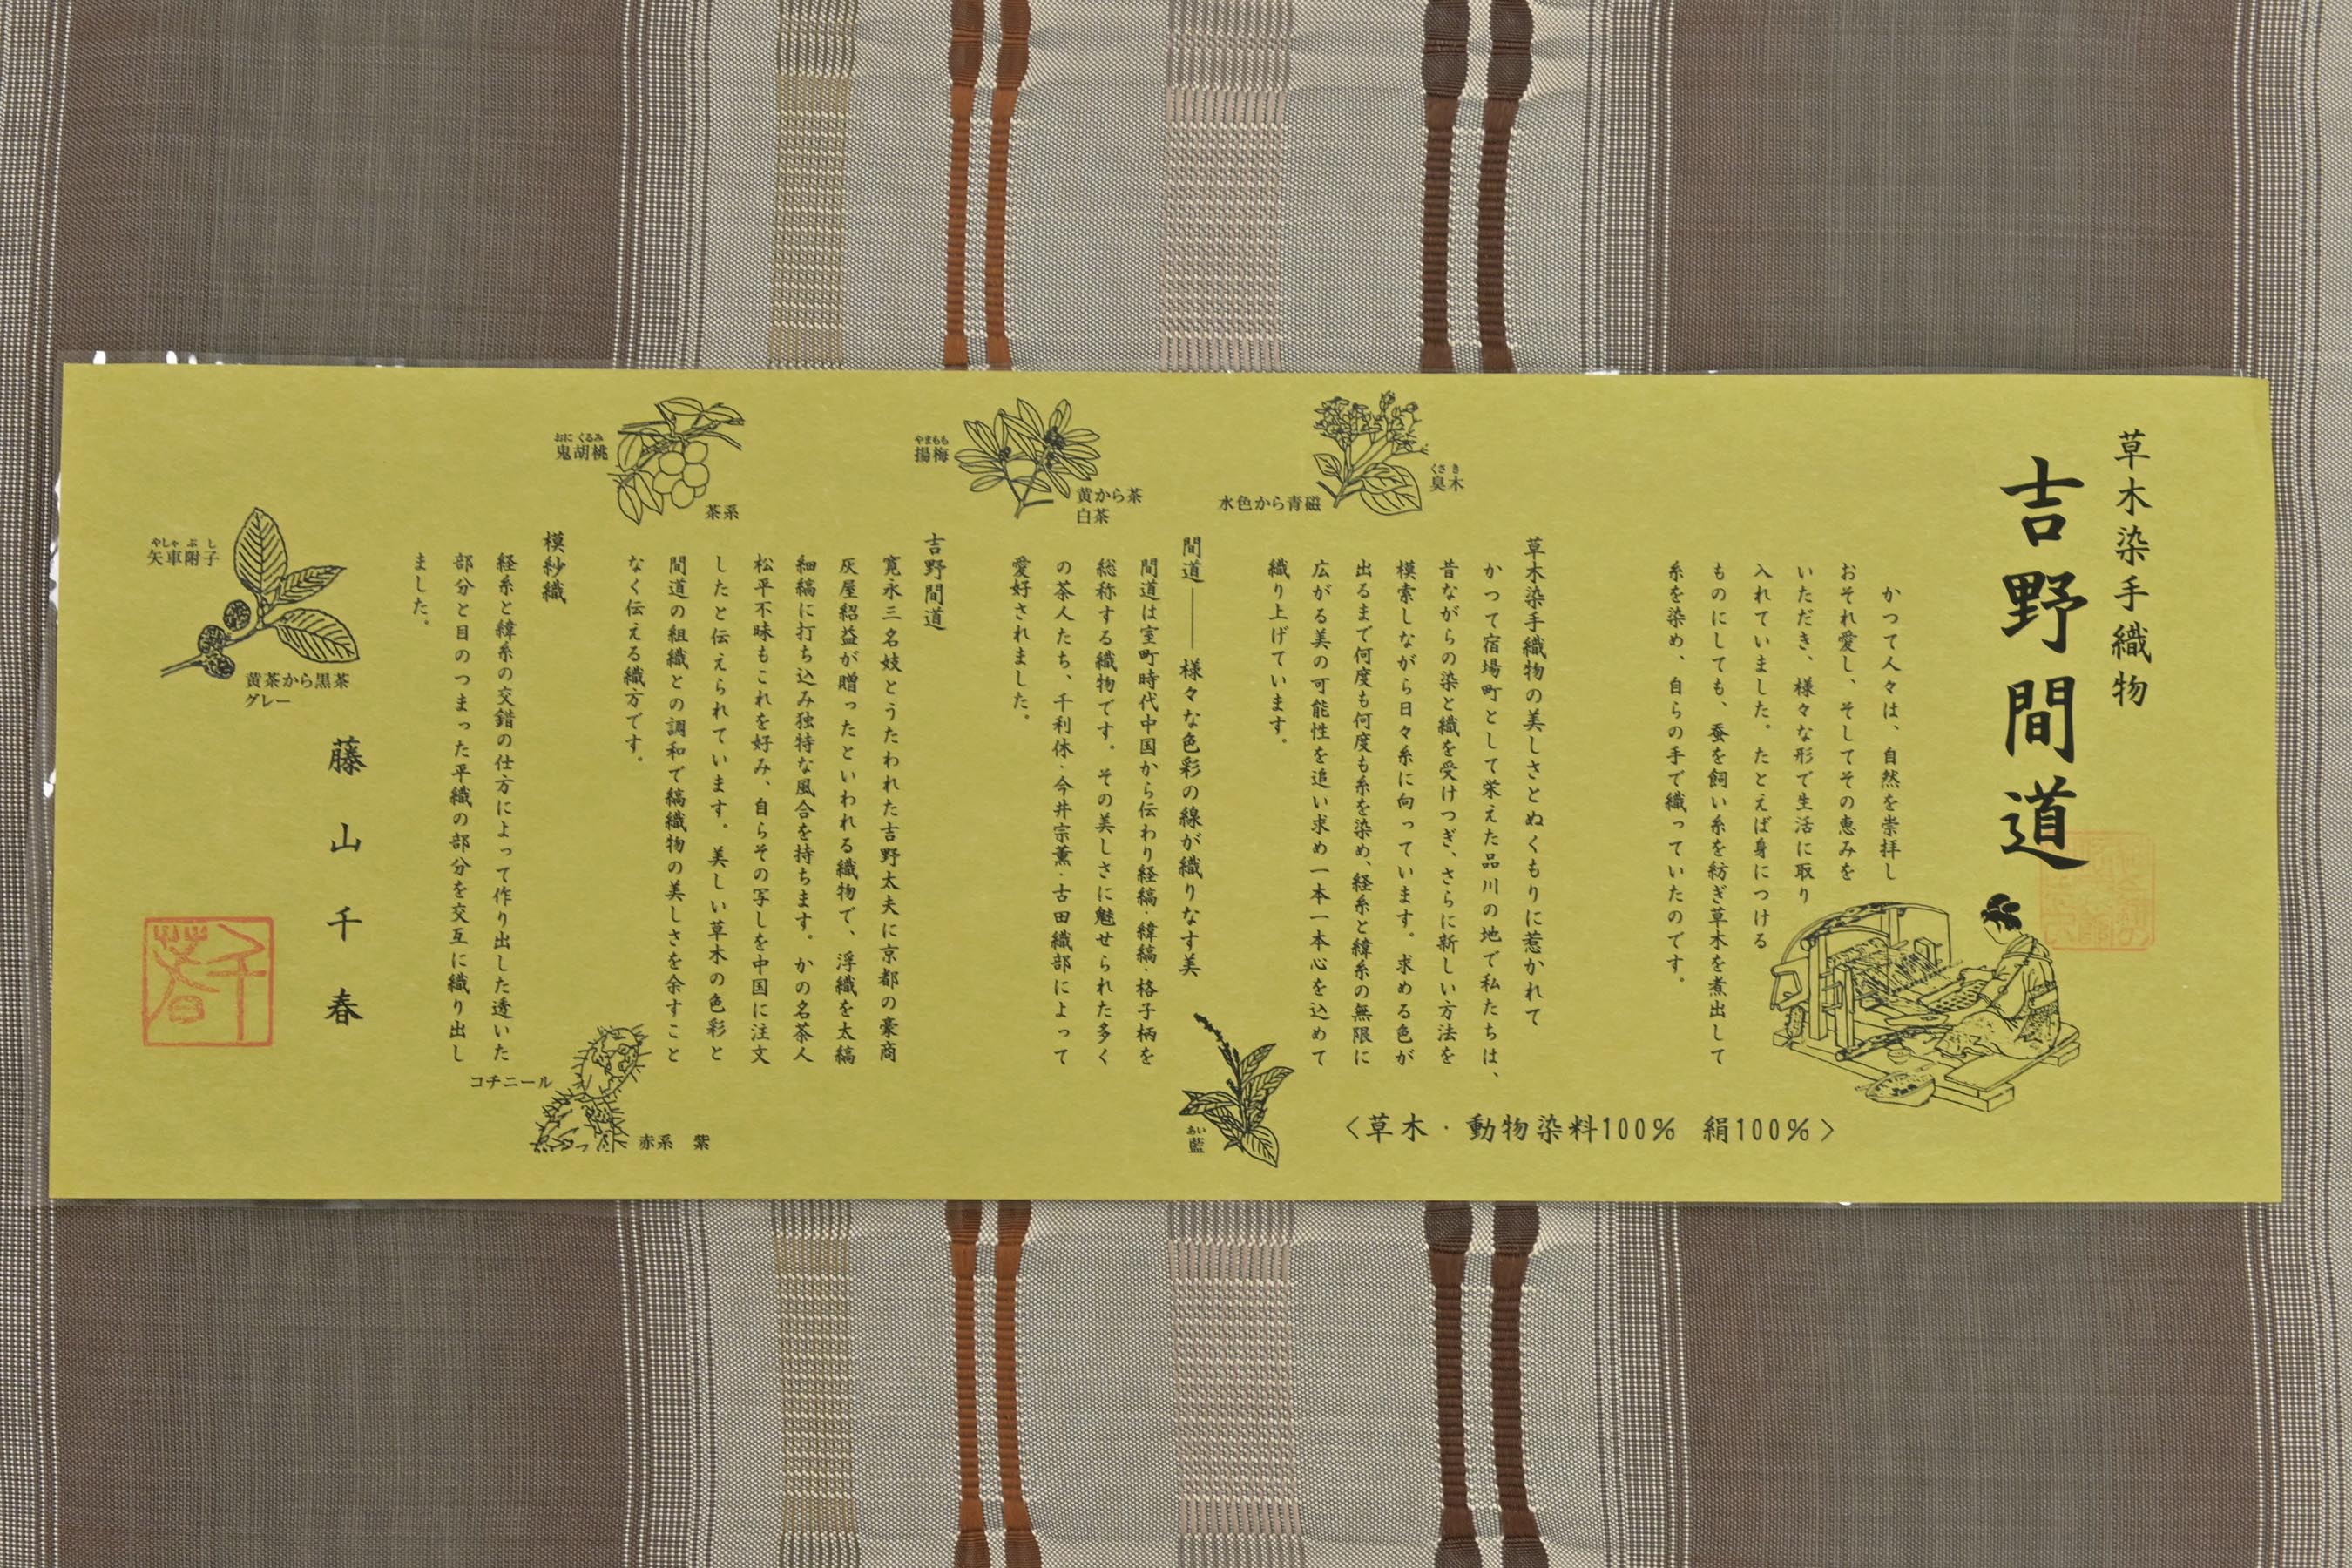 草木染手織物
吉野間道
かつて人々は、自然を崇拝し
おそれ愛し、そしてその恵みを
いただき、様々な形で生活に取り
入れていました。たとえば身につける
ものにしても、蚕を飼い糸を紡ぎ草木を煮出して
糸を染め、自らの手で織っていたのです。
〈草木・動物染料100% 絹100%〉
草木染手織物の美しさとぬくもりに惹かれて
かつて宿場町として栄えた品川の地で私たちは、
昔ながらの染と織を受けつぎ、さらに新しい方法を
模索しながら日々糸に向っています。求める色が
出るまで何度も何度も糸を染め、経糸と緯糸の無限に
広がる美の可能性を追い求め一本一本心を込めて
織り上げています。
くさき
臭木
水色から青磁
間道――様々な色彩の線が織りなす美
間道は室町時代中国から伝わり経縞・緯縞・格子柄を
総称する織物です。その美しさに魅せられた多く
の茶人たち、千利休・今井宗薫・古田織部によって
愛好されました。
あい
藍
やまもも
揚梅
黄から茶
白茶
吉野間道
寛永三名妓とうたわれた吉野太夫に京都の豪商
灰屋紹益が贈ったといわれる織物で、浮織を太縞
細縞に打ち込み独特な風合を持ちます。かの名茶人
松平不昧もこれを好み、自らその写しを中国に注文
したと伝えられています。美しい草木の色彩と
間道の組織との調和で縞織物の美しさを余すこと
なく伝える織方です。
おにくるみ
鬼胡桃
茶系
模紗織
経糸と緯糸の交錯の仕方によって作り出した透いた
部分と目のつまった平織の部分を交互に織り出し
ました。
コチニール
赤系 紫
やしゃぶし
矢車附子
黄茶から黒茶
グレー
藤山千春
千春